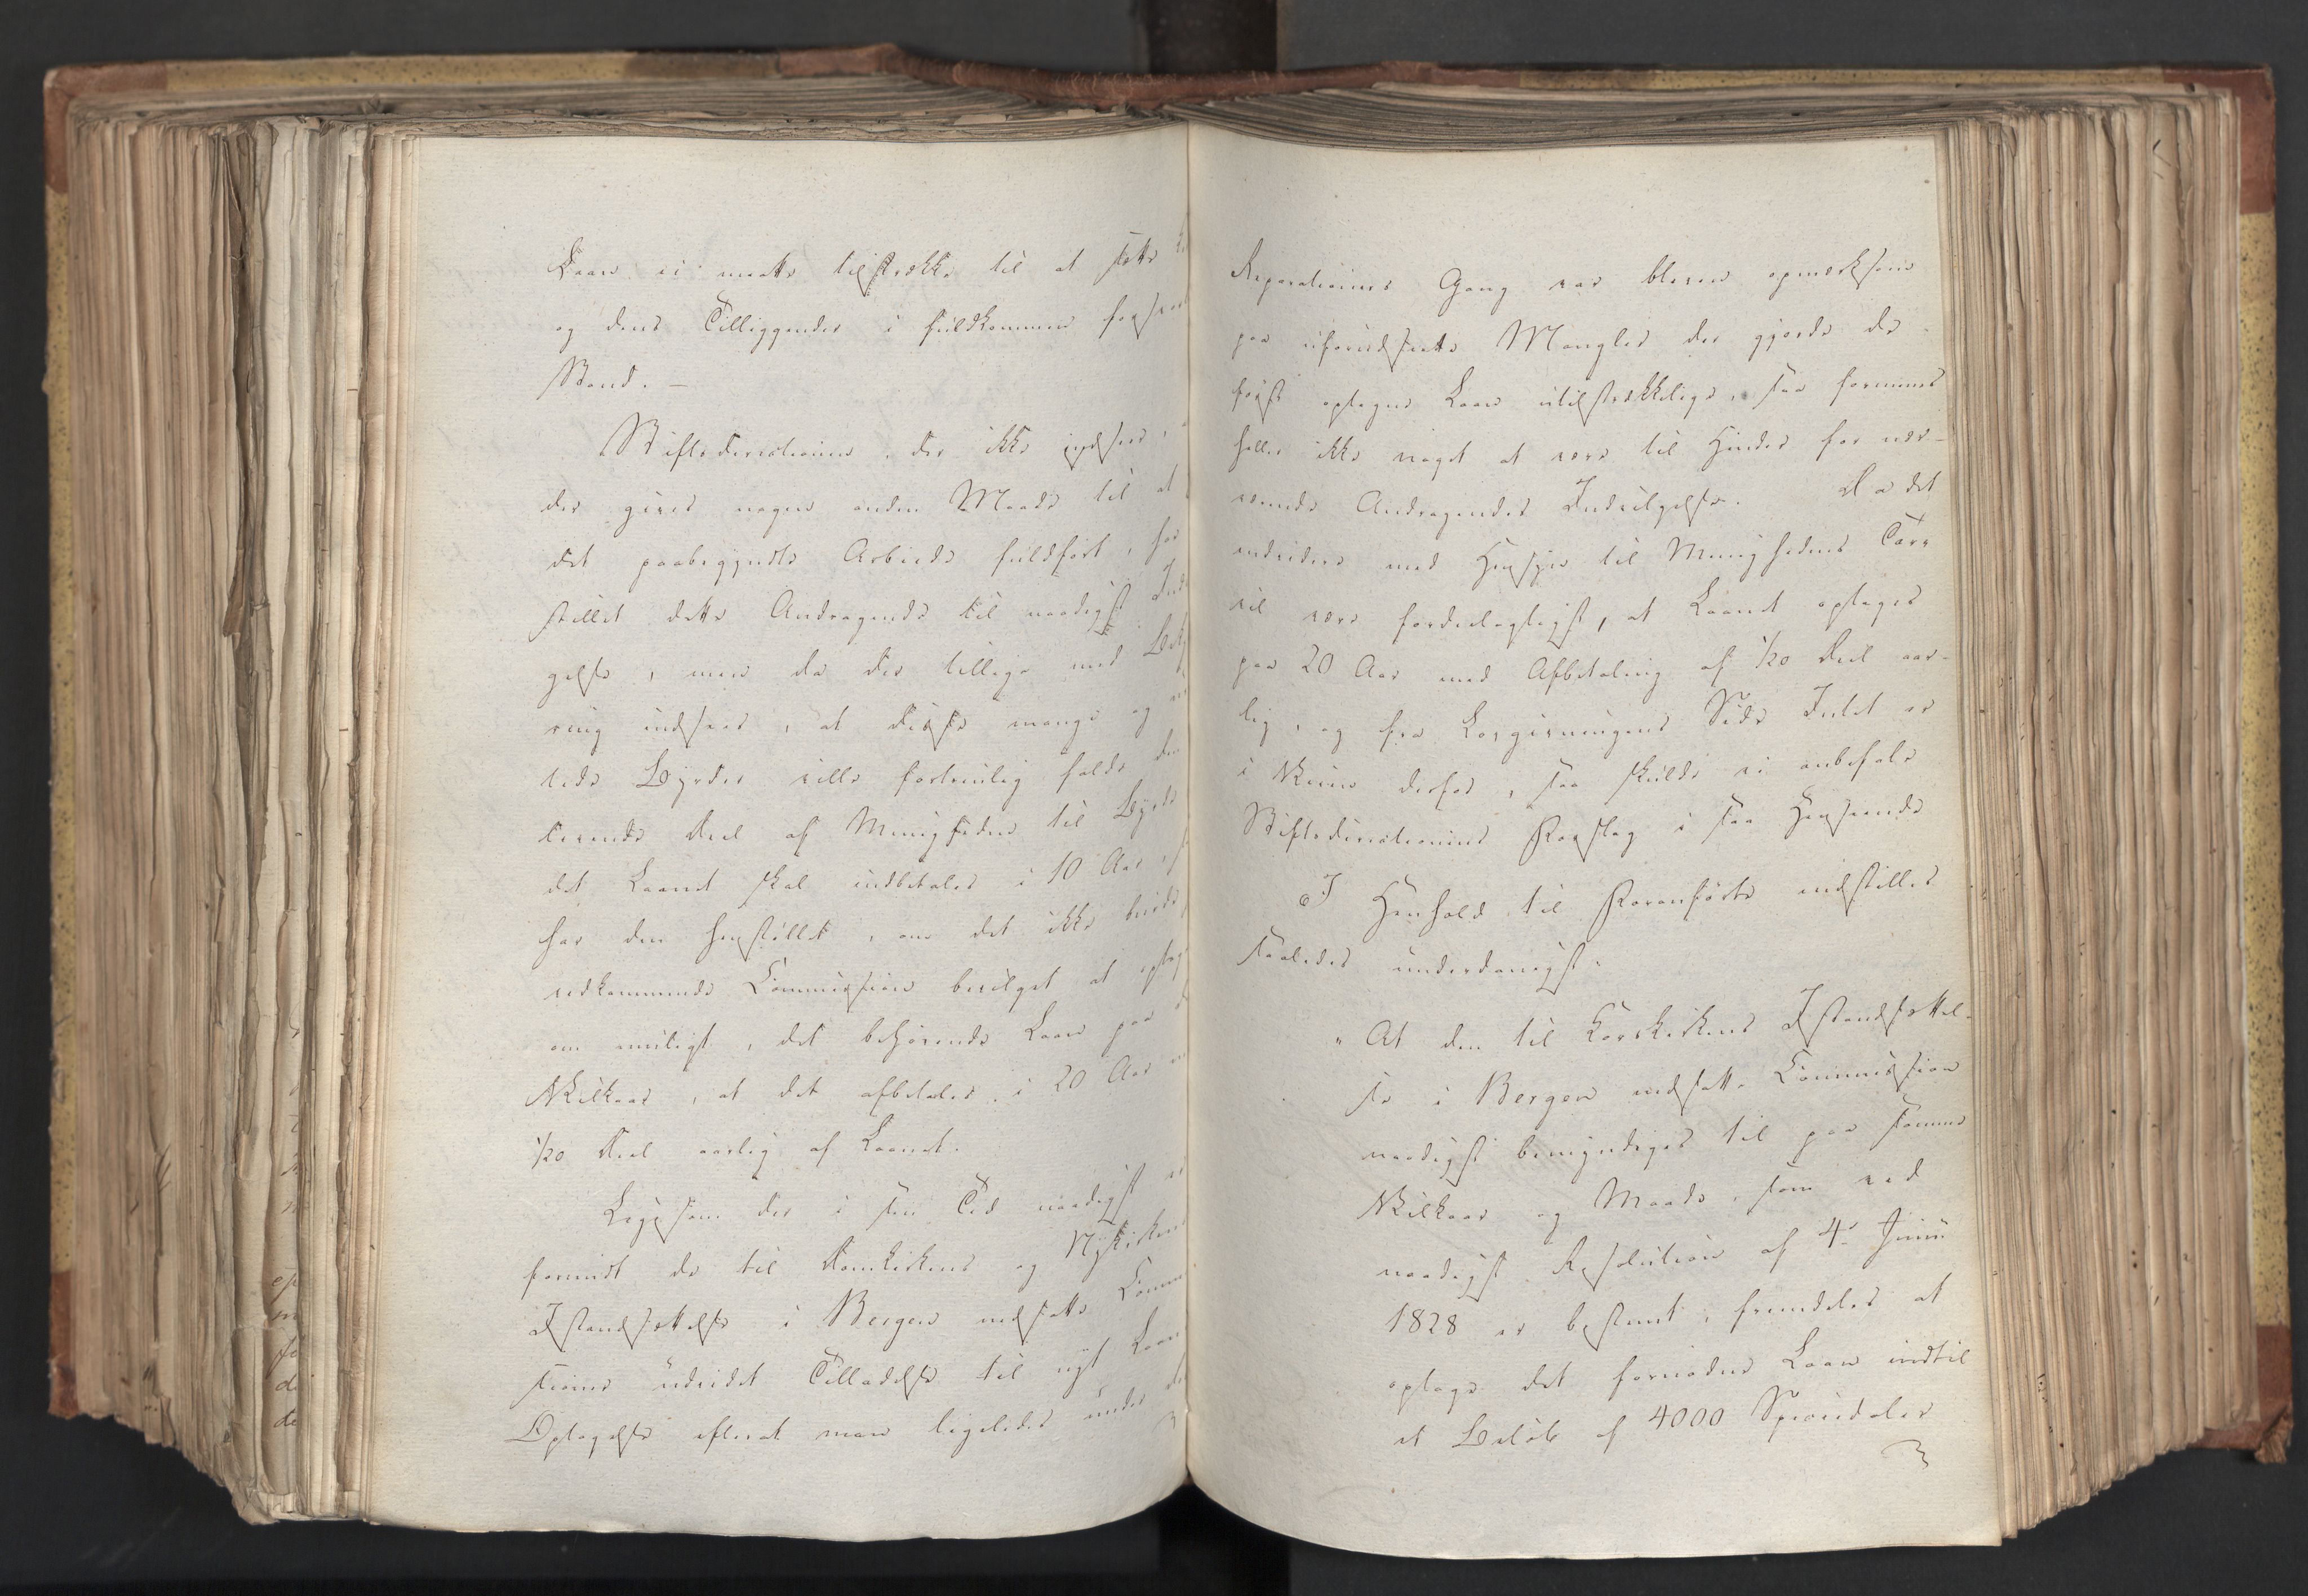 Laan ei maatte tilstrække til at sætte
og dens Tilliggender i fuldkommen forsvar
Stand. —
Stiftsdirectionen, der ikke indseer,
der gives nogen anden Maade til at
det paabegyndte Arbeide fuldført, har
stillet dette Andragende til naadigst Ind
gelse, men da der tillige med
ring indsees, at disse mange og
tede Byrder ville fortrinlig falde den
levende Deel af Menigheden til Byrde
det Laanet skal indbetales i 10 Aar,
har den henstillet, om det ikke burde
vedkommende Commission bevilget at optag
om muligt, det behøvende Laan paa
Vilkaar, at det afbetales i 20 Aar
1/20 Deel aarlig af Laanet.
Ligesom der i sin Tid naadigst
formeent de til Domkirkens og Nykirkens
Istandsættelse i Bergen nedsatte Comm
sioner udvidet Tilladelse til nyt Laans
Optagelse efterat man ligeledes under
Reparationens Gang var bleven opmærksom
paa uforudseete Mangler der gjorde de
først optagne Laan utilstrækkelige, saa formenes
heller ikke noget at være til Hinder for nær-
værende Andragendes Indvilgelse. Da det
endvidere med Hensyn til Menighedens Tarv
vil være fordeelagtigst, at Laanet optages
paa 20 Aar med Afbetaling af 1/20 Deel aar-
lig, og fra Lovgivningens Side Intet er
i Veien derfor, saa skulde vi anbefale
Stiftsdirectionens Forslag i saa Henseende
I Henhold til Foranførte indstilles
saaledes underdanigst:
"At den til Korskirkens Istandsættel-
se i Bergen nedsatte Commission
naadigst bemyndiges til paa samme
Vilkaar og Maade, som ved
naadigst Resolution af 4de Junii
1828 er bestemt, fremdeles at
optage det fornødne Laan indtil
et Beløb af 4000 Speciedaler